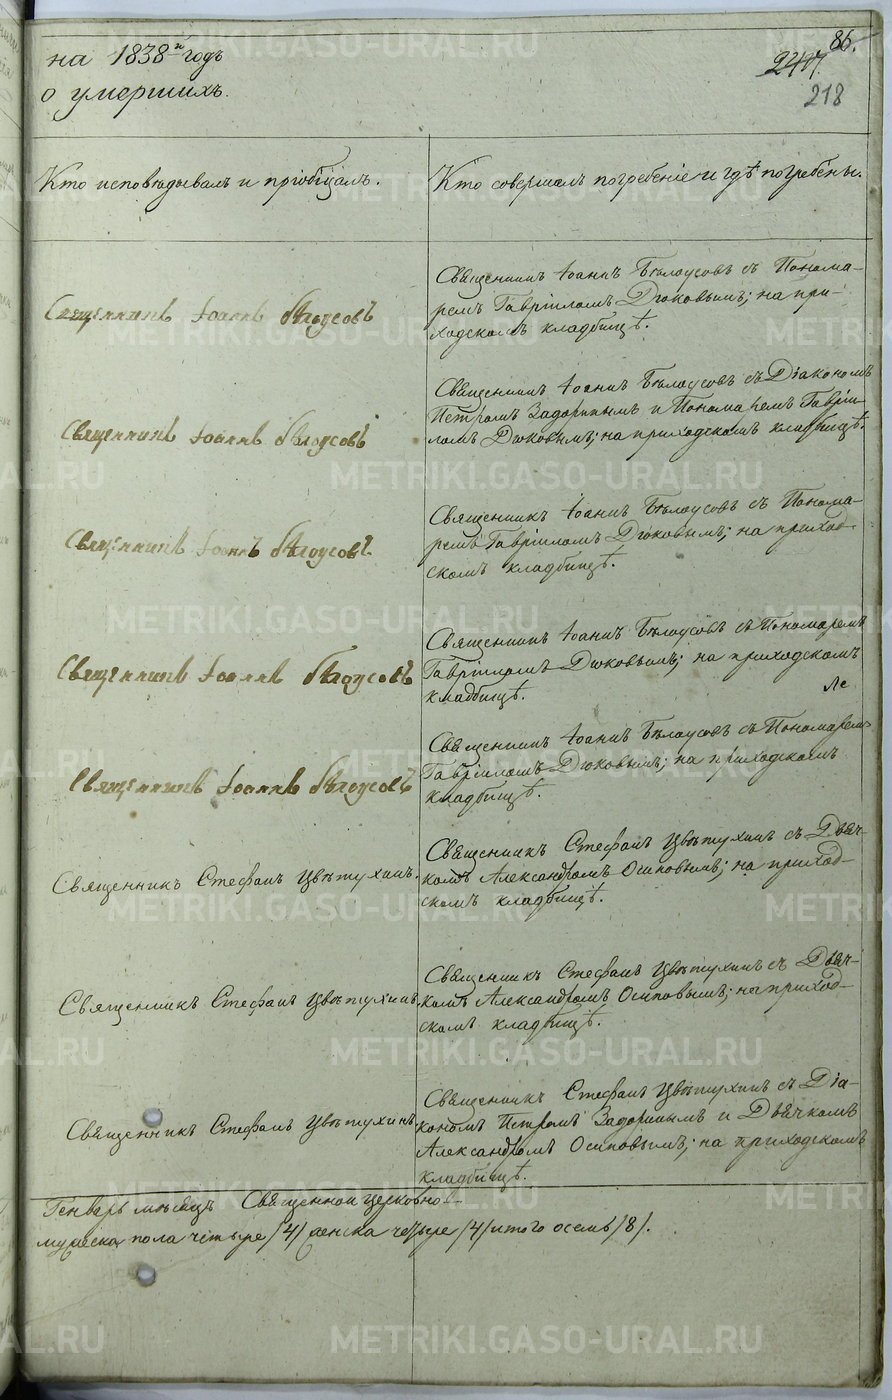 на 1838й годъ
о умершихъ.
86.
2417.
218
Кто исповѣдывалъ и пріобщалъ.
Кто совершалъ погребеніе и гдѣ погребены.
Священникъ Іоаннъ Бѣлоусовъ
Священникъ Іоаннъ Бѣлоусовъ съ Понома-
ремъ Гавріиломъ Дюковымъ; на при-
ходскомъ кладбищѣ.
Священникъ Іоаннъ Бѣлоусовъ
Священникъ Іоаннъ Бѣлоусовъ съ Діакономъ
Петромъ Задоринымъ и Пономаремъ Гавріи-
ломъ Дюковымъ; на приходскомъ кладбищѣ.
Священникъ Іоаннъ Бѣлоусовъ
Священникъ Іоаннъ Бѣлоусовъ съ Понома-
ремъ Гавріиломъ Дюковымъ; на приход-
скомъ кладбищѣ.
Священникъ Іоаннъ Бѣлоусовъ
Священникъ Іоаннъ Бѣлоусовъ съ Пономаремъ
Гавріиломъ Дюковымъ; на приходскомъ
кладбищѣ.
Священникъ Іоаннъ Бѣлоусовъ
Священникъ Іоаннъ Бѣлоусовъ съ Пономаремъ
Гавріиломъ Дюковымъ; на приходскомъ
кладбищѣ.
Священникъ Стефанъ Цвѣтухинъ.
Священникъ Стефанъ Цвѣтухинъ съ Дьяч-
комъ Александромъ Осиповымъ; на приход-
скомъ кладбищѣ.
Священникъ Стефанъ Цвѣтухинъ.
Священникъ Стефанъ Цвѣтухинъ съ Дьяч-
комъ Александромъ Осиповымъ; на приход-
скомъ кладбищѣ.
Священникъ Стефанъ Цвѣтухинъ.
Священникъ Стефанъ Цвѣтухинъ съ Діа-
кономъ Петромъ Задоринымъ и Дьячкомъ
Александромъ Осиповымъ; на приходскомъ
кладбищѣ.
Генварь мѣсяцъ
мужеска пола четыре /4/ женска четыре /4/ итого осемь /8/.
METRIKI.GASO-URAL.RU